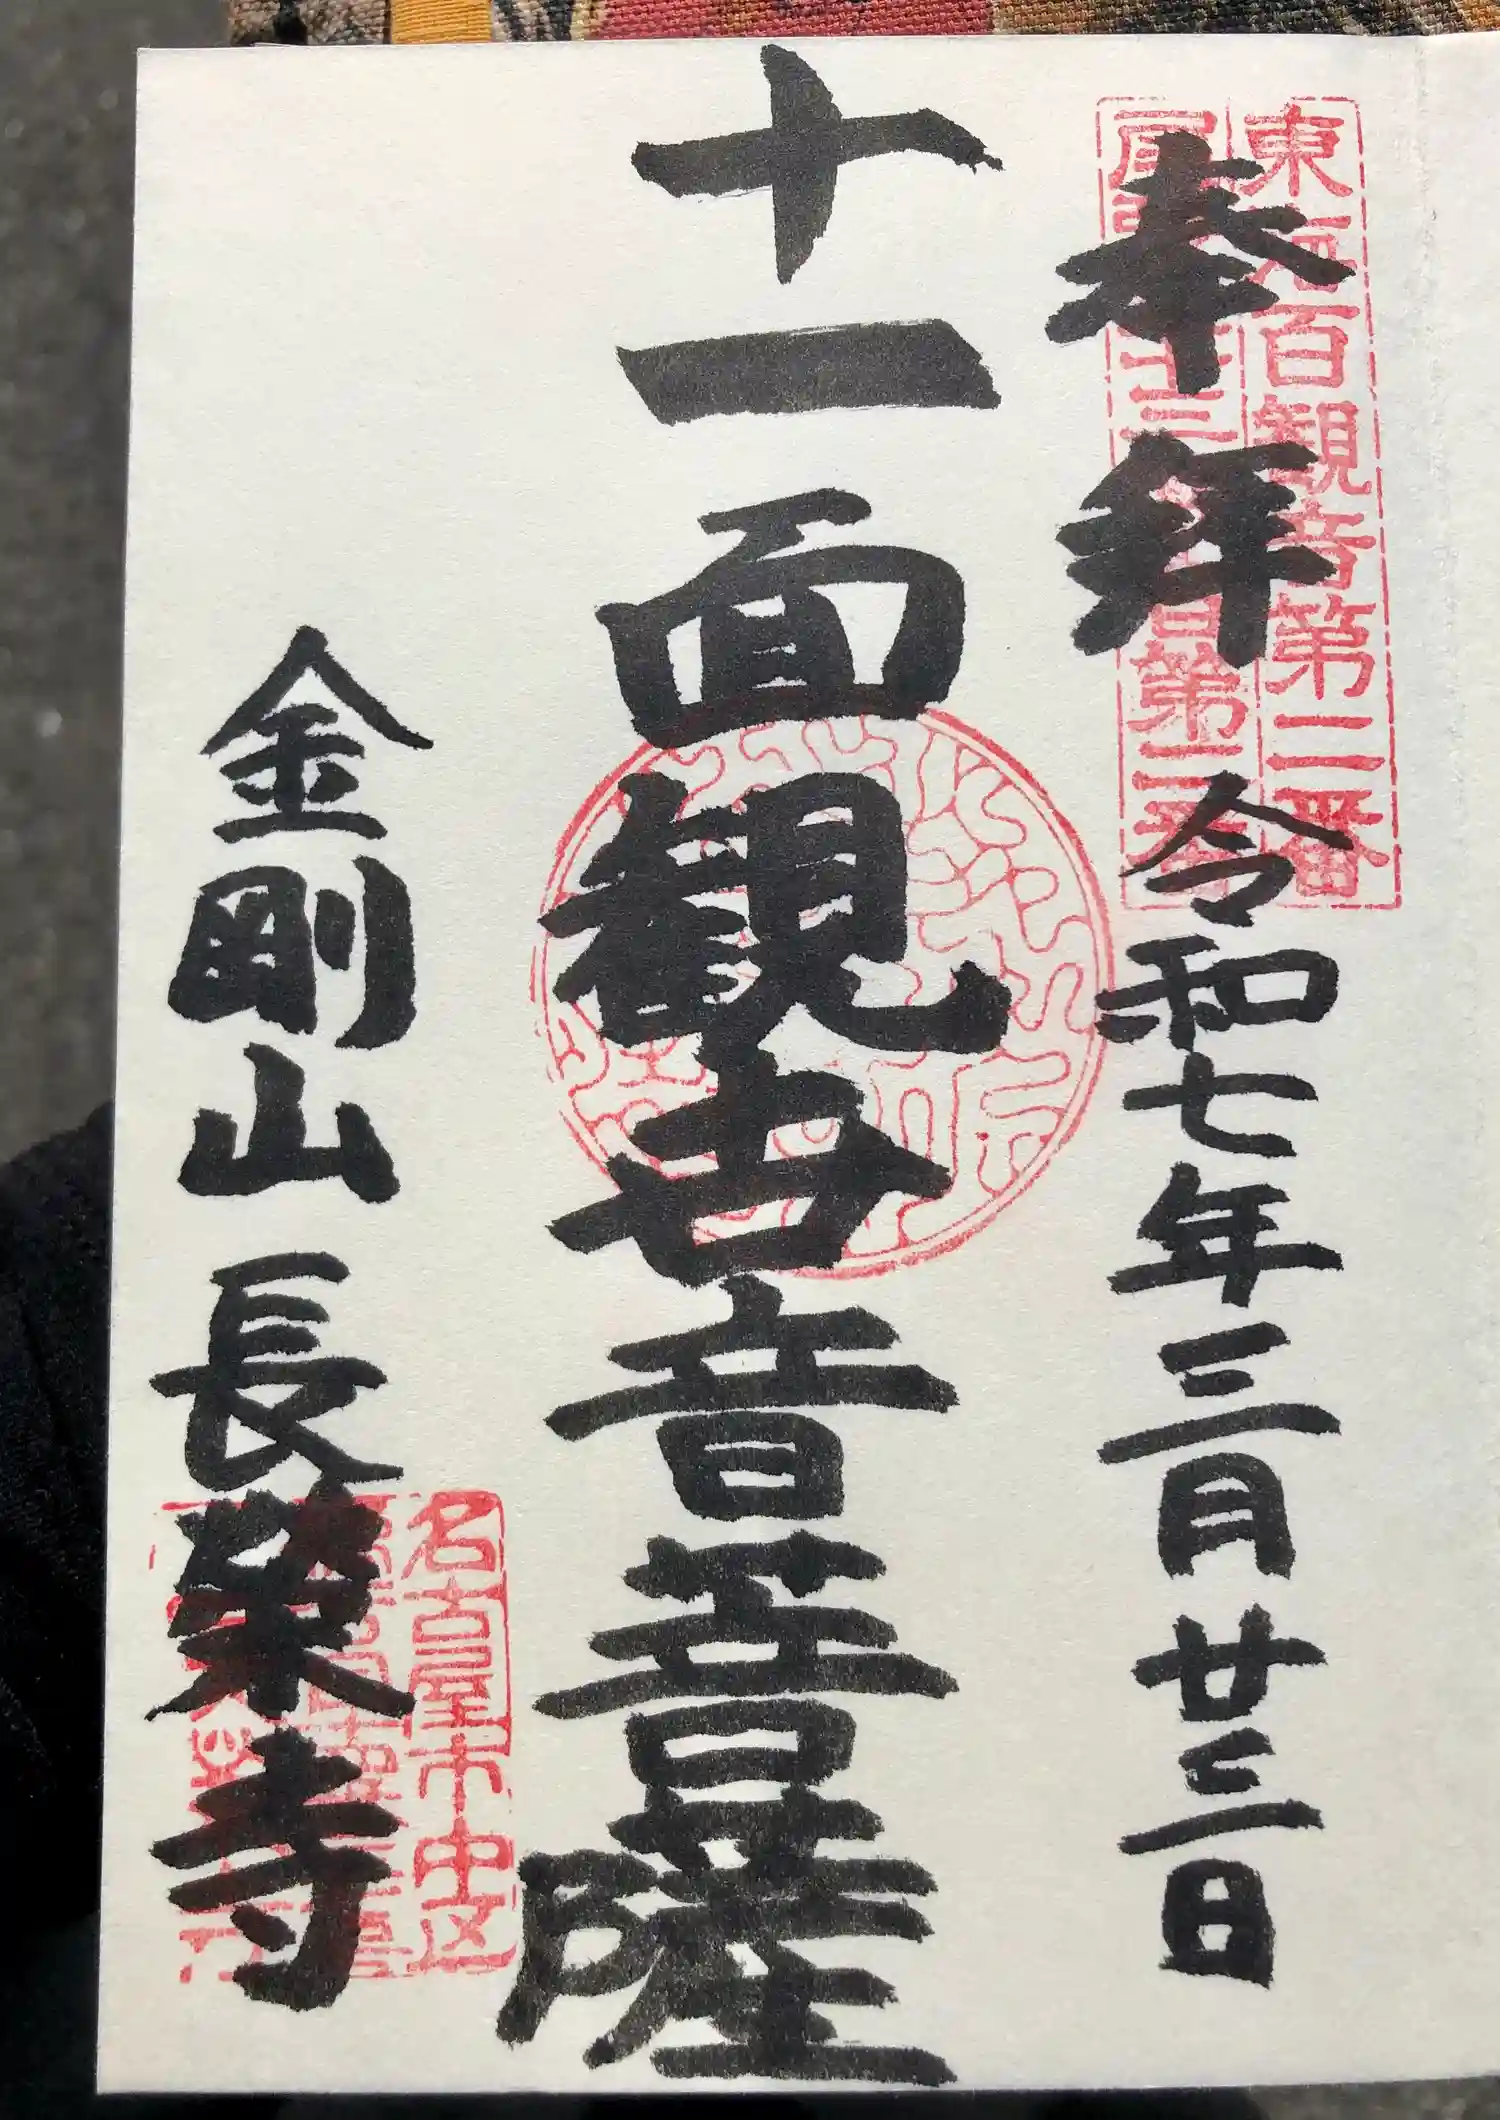 東海百観音第二番
尾張三十三観音第二番
奉拝 令和七年三月廿三日
十一面観世音菩薩
金剛山 長榮寺
名古屋市中区